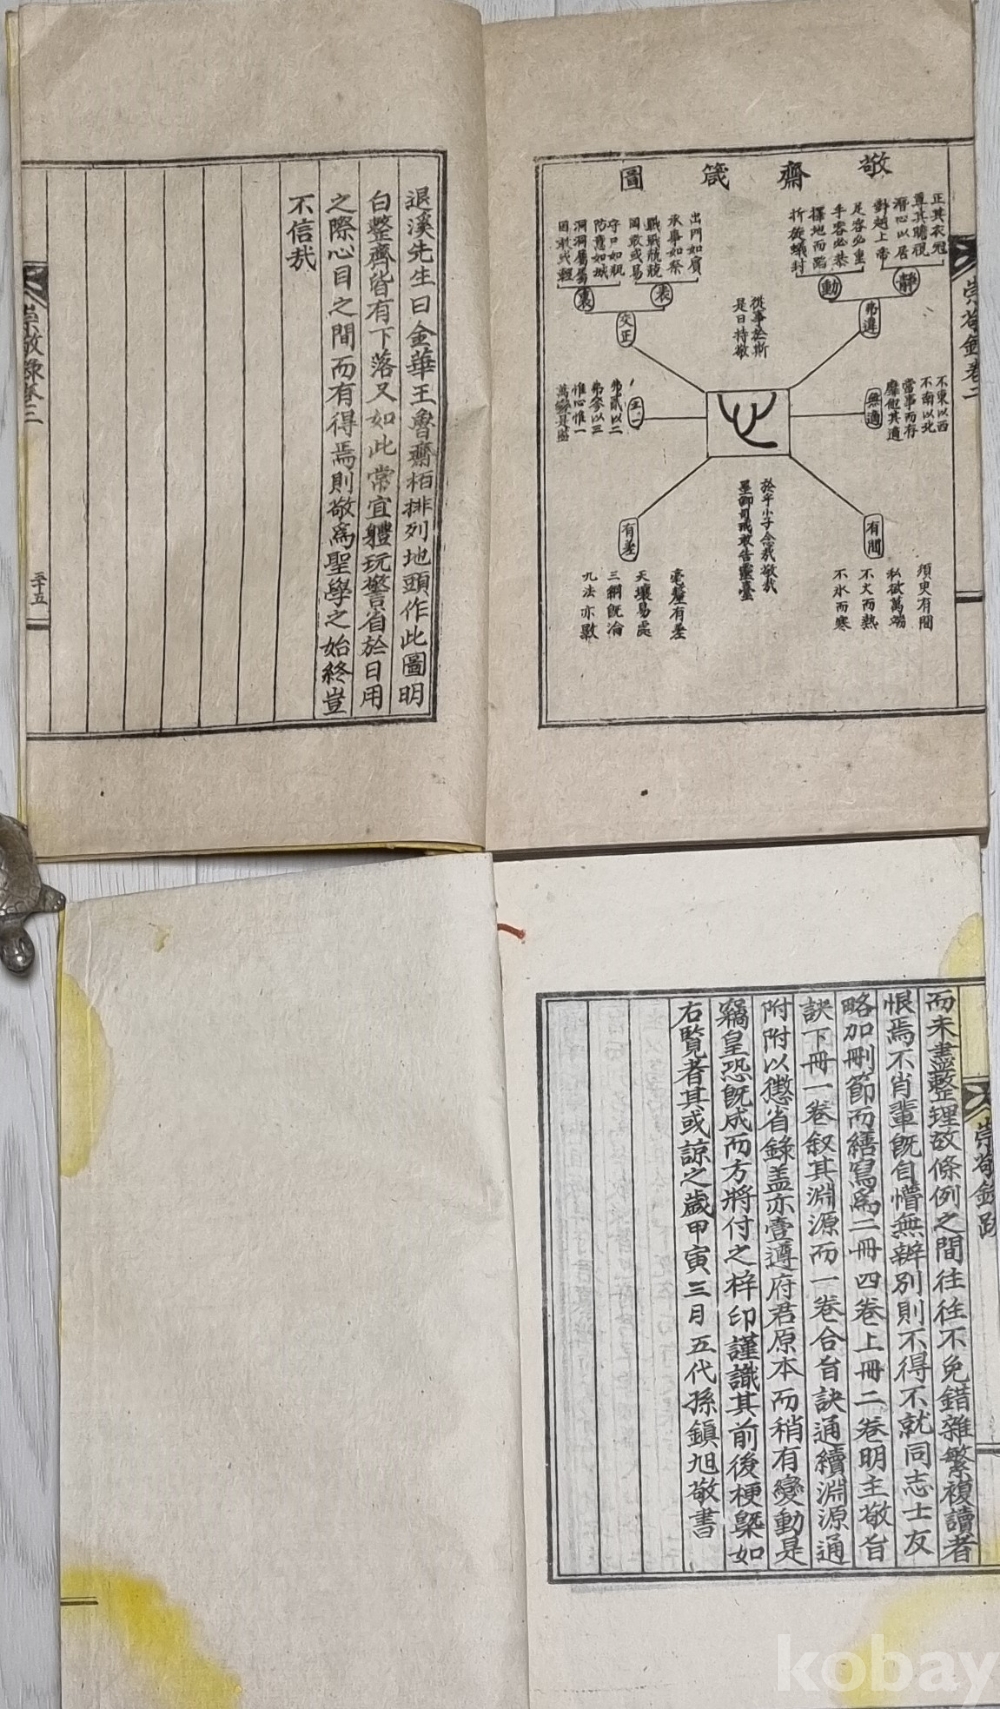 敬齋箴圖
正其衣冠
尊其瞻視
潛心以居
對越上帝
靜
足容必重
手容必恭
擇地而蹈
折旋蟻封
動
弗違
出門如賓
承事如祭
戰戰兢兢
罔敢或易
表
守口如瓶
防意如城
洞洞屬屬
罔敢或輕
裏
交正
從事於斯
是曰持敬
心
不東以西
不南以北
當事而存
靡他其適
無適
弗貳以二
弗參以三
惟心惟一
萬變是監
於乎小子念哉敬哉
墨卿司戒敢告靈臺
有間
須臾有間
私欲萬端
不火而熱
不氷而寒
有差
毫釐有差
天壤易處
三綱旣淪
九法亦斁
崇敬錄卷二
退溪先生曰金華王魯齋栢排列地頭作此圖明
白整齊皆有下落又如此常宜軆玩警省於日用
之際心目之間而有得焉則敬爲聖學之始終豈
不信哉
崇敬錄卷二
三十五
崇敬錄跋
而未盡整理故條例之間往往不免錯雜繁複讀者
恨焉不肖輩旣自懵無辨別則不得不就同志士友
略加刪節而繕寫爲二冊四卷上冊二卷明主敬旨
訣下冊一卷叙其淵源而一卷合旨訣通續淵源通
附附以懲省錄盖亦壹遵府君原本而稍有變動是
竊皇恐旣成而方將付之梓印謹識其前後梗槩如
右覽者其或諒之歲甲寅三月五代孫鎭旭敬書
kobay